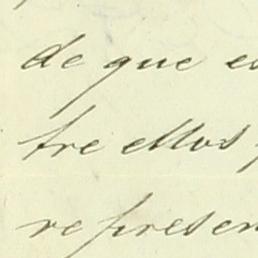 de que es
tre ellos
represen